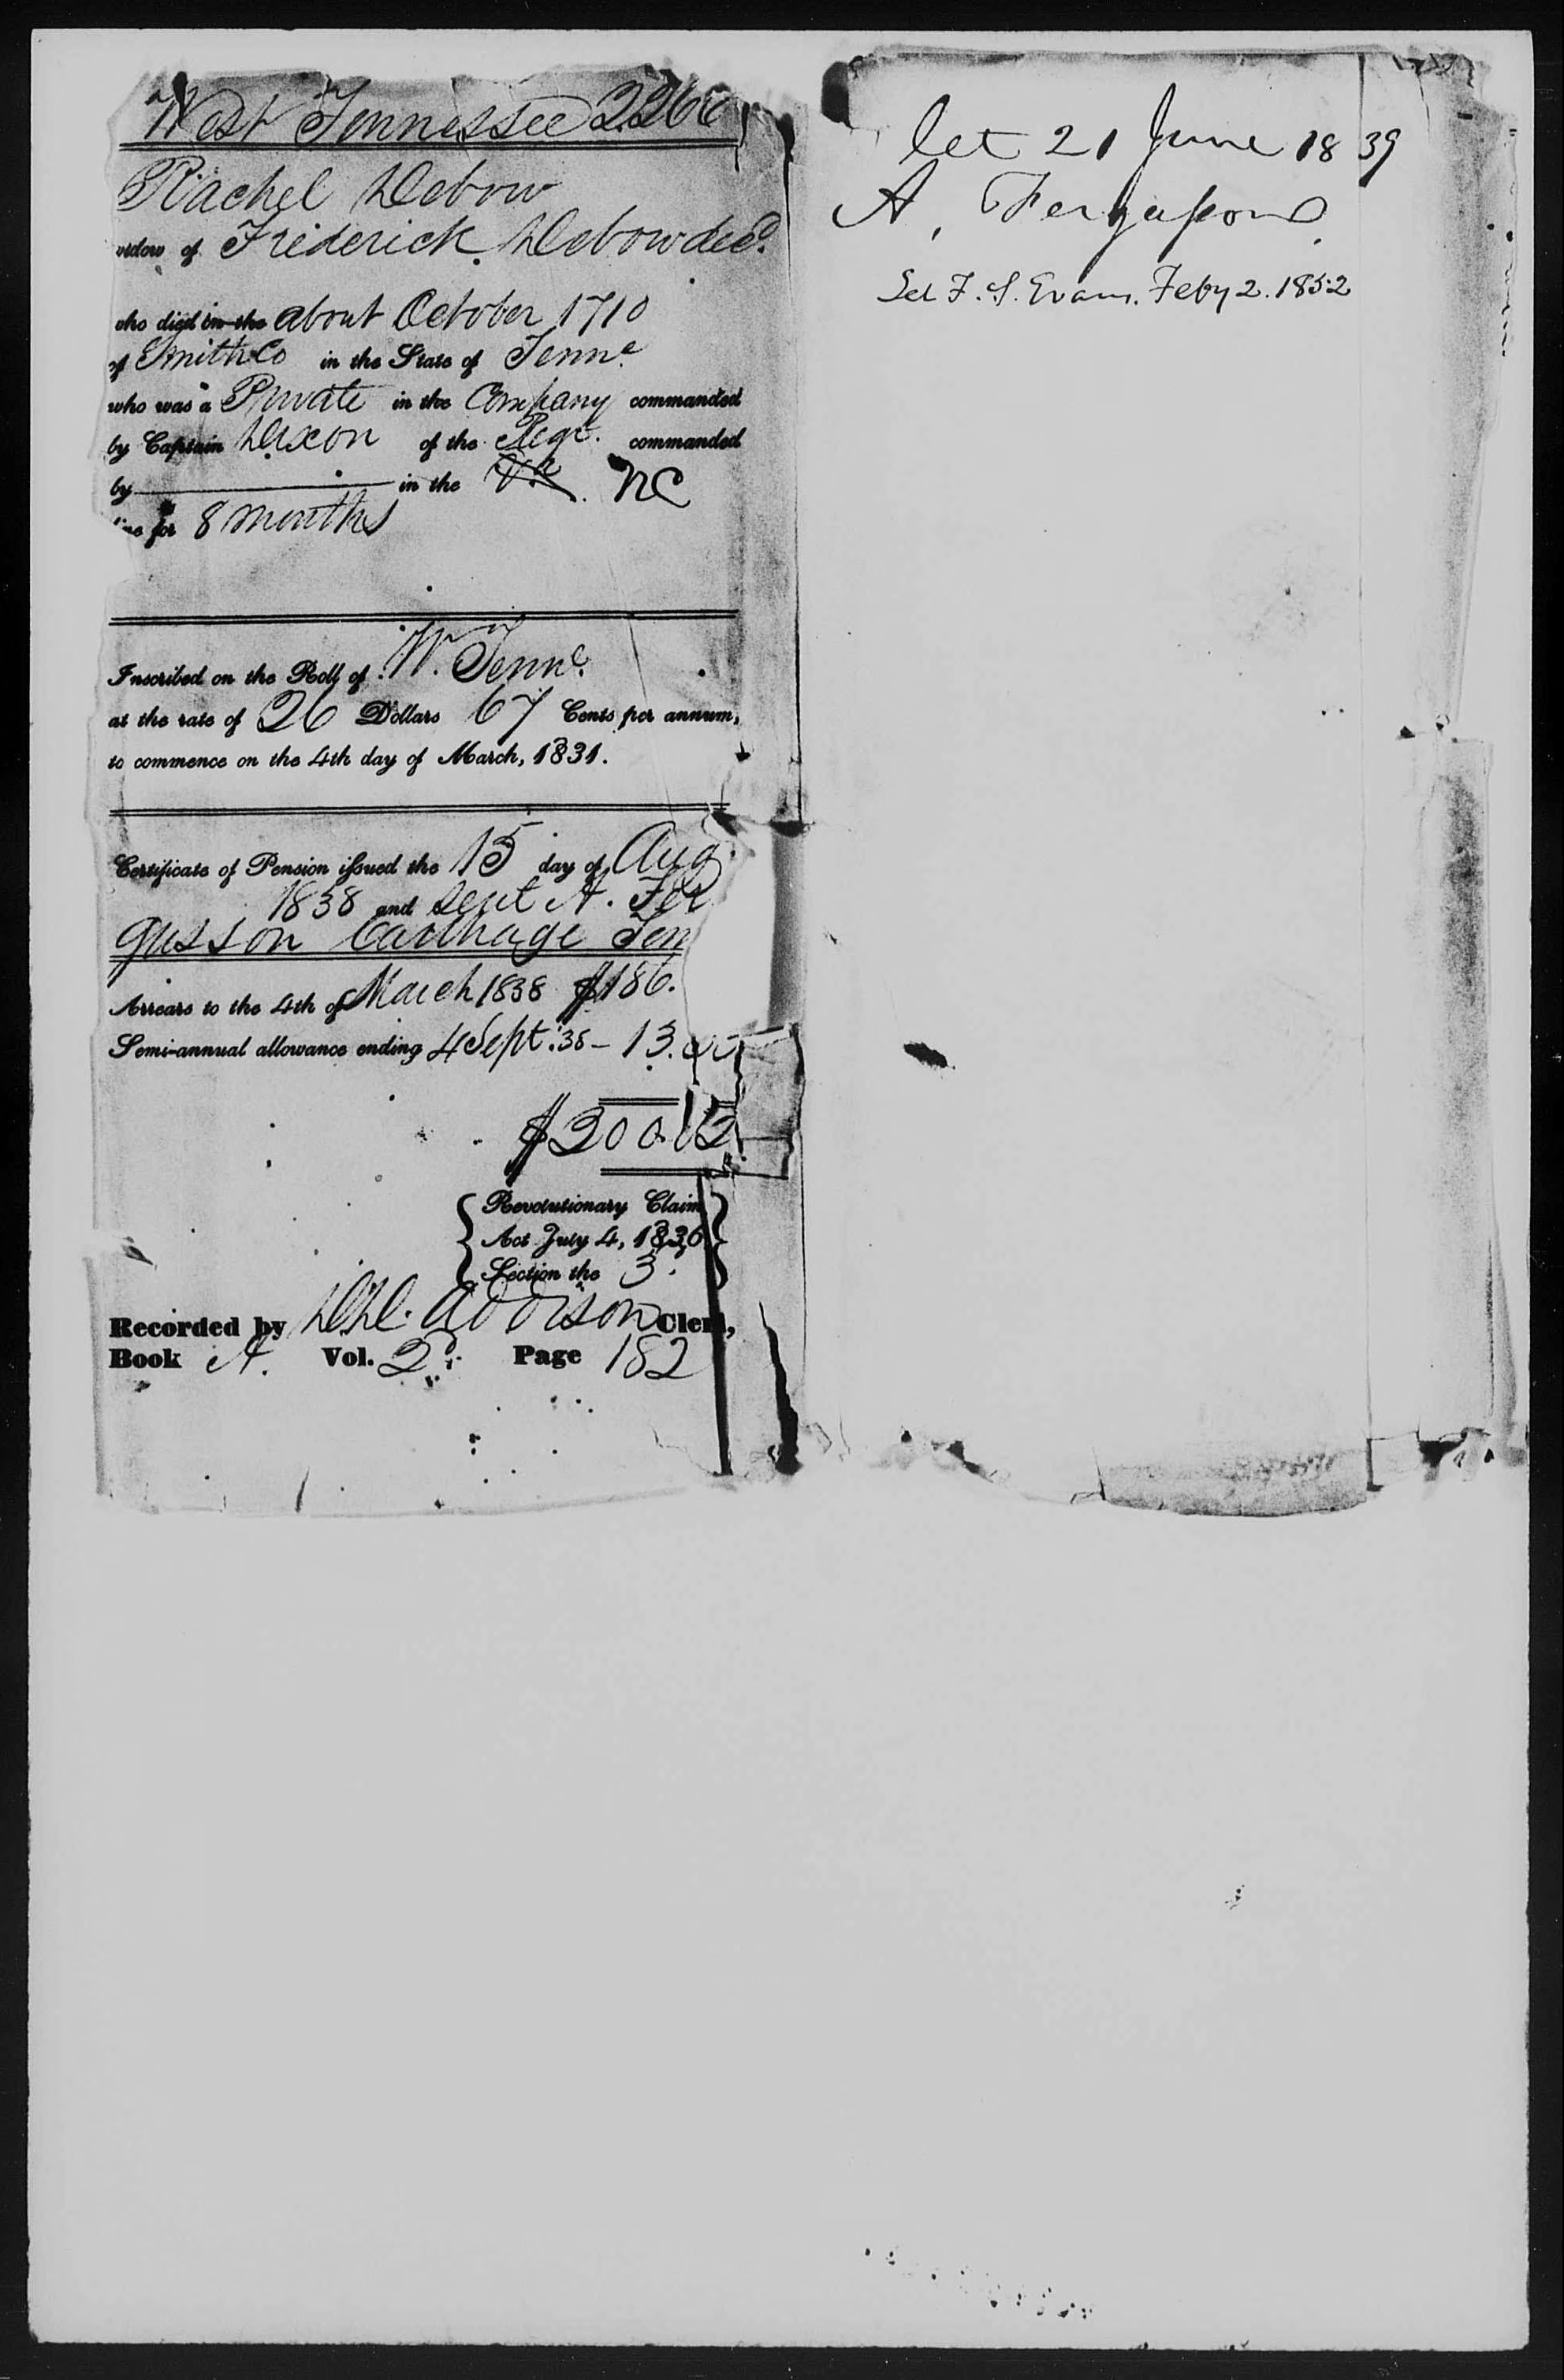 West Tennessee 2260
Rachel Debow
widow of Frederick Debow decd.
who died in the about October 1710
of Smith Co in the State of Tenne
who was a Private in the Company commanded
by Captain Dixon of the Regt. commanded
by in the Va NC
line for 8 months
Inscribed on the Roll of W. Tenne.
at the rate of 26 Dollars 67 Cents per annum,
to commence on the 4th day of March, 1831.
Certificate of Pension issued the 15 day of Aug
1838 and sent A. Fer
gusson Carthage Ten
Arrears to the 4th of March 1838 $186.
Semi-annual allowance ending 4 Sept. 38 - 13.
$200.02
Revolutionary Claim
Act July 4, 1836
Section the 3.
Recorded by Addison Clerk,
Book A. Vol. 2 Page 182
let 21 June 1839
A, Fergusson
Let F. S. Evans. Feby 2. 1852